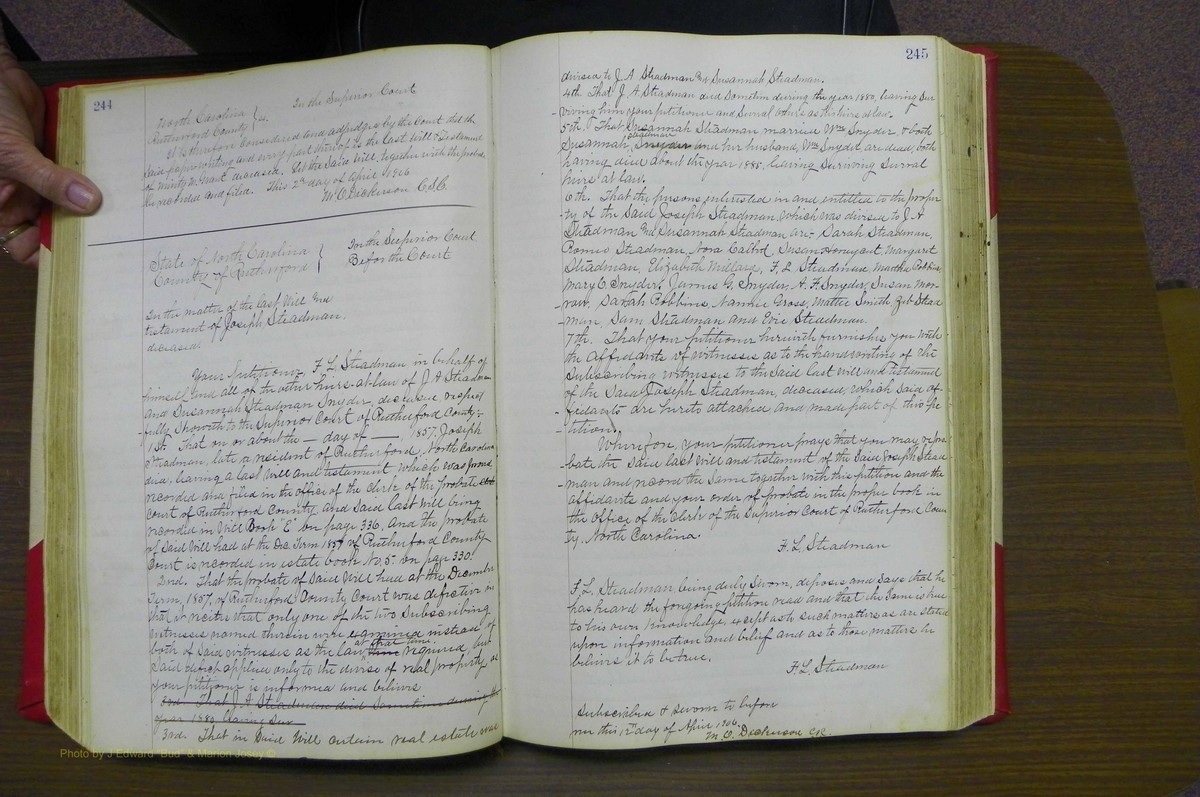 244
In the Superior Court
North Carolina
Rutherford County
It is therefore considered and adjudged by the Court that the
said paper writing and every part thereof is the last Will & testament
of deceased. Let the said Will, together with the probate
be recorded and filed. This 2nd day of April 1906
M.O. Dickerson C.S.C.
State of North Carolina
County of Rutherford
In the Superior Court
Before the Court
In the matter of the last Will and
testament of Joseph Steadman,
deceased.
Your petitioner, F. L. Steadman in behalf of
himself and all of the other heirs-at-law of J. A. Steadman
and Susannah Steadman Snyder, deceased respect
-fully showeth to the Superior Court of Rutherford County:-
1st. That on or about the — day of — 1857, Joseph
Steadman, late a resident of Rutherford, North Carolina
died, leaving a last will and testament which was proved
recorded and filed in the office of the clerk of the probate
court of Rutherford County and said last will being
recorded in Will Book "E" on page 336, and the probate
of said Will had at the Dec. Term 1857 of Rutherford County
Court is recorded in estate book No. 5 on page 330.
2nd. That the probate of said Will had at the December
Term, 1857, of Rutherford County Court was defective in
that it recites that only one of the two subscribing
witnesses named therein were examined instead of
both of said witnesses as the law at that time required, and
said defect applied only to the devise of real property, as
your petitioner is informed and believes
3rd. That J. A. Steadman died sometime during the
year 1880, leaving sur
3rd. That in said Will certain real estate was
245
devised to J. A. Steadman and Susannah Steadman.
4th. That J. A. Steadman died sometim during the year 1880, leaving sur
-viving him your petitioner and several others as this heirs at law.
5th. That Susannah Steadman married Wm Snyder, & both
Susannah Steadman Snyder and her husband, Wm Snyder, are dead, both
having died about the year 1885, leaving surviving several
heirs at law.
6th. That the persons interested in and entitled to the proper
-ty of the said Joseph Steadman, which was devised to J. A.
Steadman and Susannah Steadman are:- Sarah Steadman,
Romeo Steadman, Nora Susan Honeycut, Margaret
Steadman, Elizabeth F. L. Steadman Martha Robbins,
Mary E. Snyder, James G. Snyder, A. F. Snyder, Susan Mor-
row, Sarah Robbins, Nannie Gross, Mattie Smith, Zeb Stead
-man, Sam Steadman and Evie Steadman.
7th. That your petitioner herewith furnishes you with
the affidavits of witnesses as to the handwriting of the
subscribing witnesses to the said last will and testament
of the said Joseph Steadman, deceased, which said af-
-fidavits are hereto attached and made part of this pe
-tition.
Wherefore, your petitioner prays that you may repro
-bate the said last will and testament of the said Joseph Stead-
-man and record the same together with this petition and the
affidavits and your order of probate in the proper book in
the office of the Clerk of the Superior Court of Rutherford Coun
ty. North Carolina.
F. L. Steadman
F. L. Steadman being duly sworn, deposes and says that he
has heard the foregoing petition read and that the same is true
to his own knowledge, except as to such matters as are stated
upon information and belief and as to those matters he
believes it to be true.
F. L. Steadman
Subscribed & sworn to before
me this 12th day of April 1906.
M. O. Dickerson CSC
Photo by J Edward "Bud" & Marion Josey ©